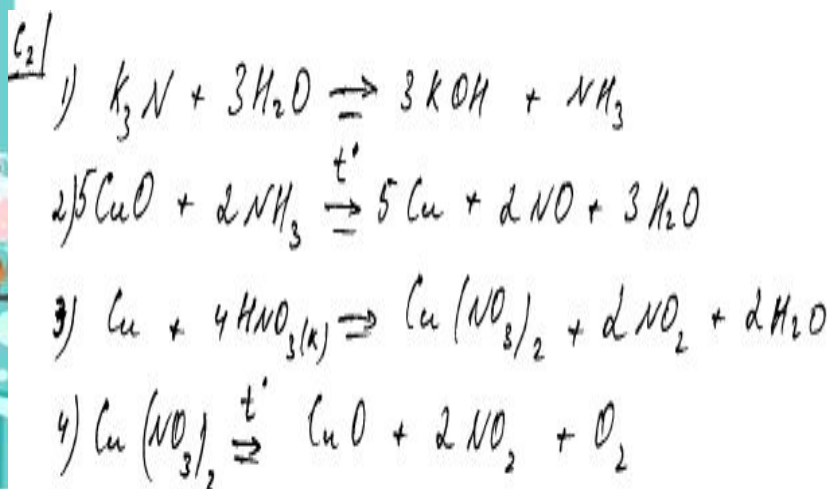 C₂
1) K₃N + 3H₂O ⇒ 3KOH + NH₃
2) 5CuO + 2NH₃ t° ⇒ 5Cu + 2NO + 3H₂O
3) Cu + 4HNO₃(к) ⇒ Cu(NO₃)₂ + 2NO₂ + 2H₂O
4) Cu(NO₃)₂ t° ⇒ CuO + 2NO₂ + O₂